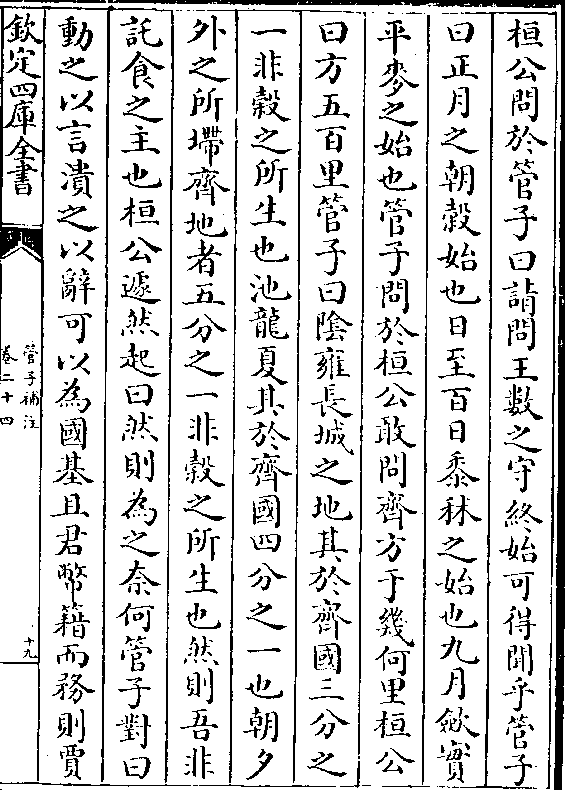 桓公問於管子曰請問王數之守終始可得聞乎管子
曰正月之朝穀始也日至百日黍秫之始也九月斂實
平麥之始也管子問於桓公敢問齊方于幾何里桓公
曰方五百里管子曰陰雍長城之地其於齊國三分之
一非穀之所生也池龍夏其於齊國四分之一也朝夕
外之所墆齊地者五分之一非穀之所生也然則吾非
託食之主也桓公遽然起曰然則為之奈何管子對曰
動之以言潰之以辭可以為國基且君幣籍而務則賈
欽定四庫全書
管子補注
卷二十四
十九